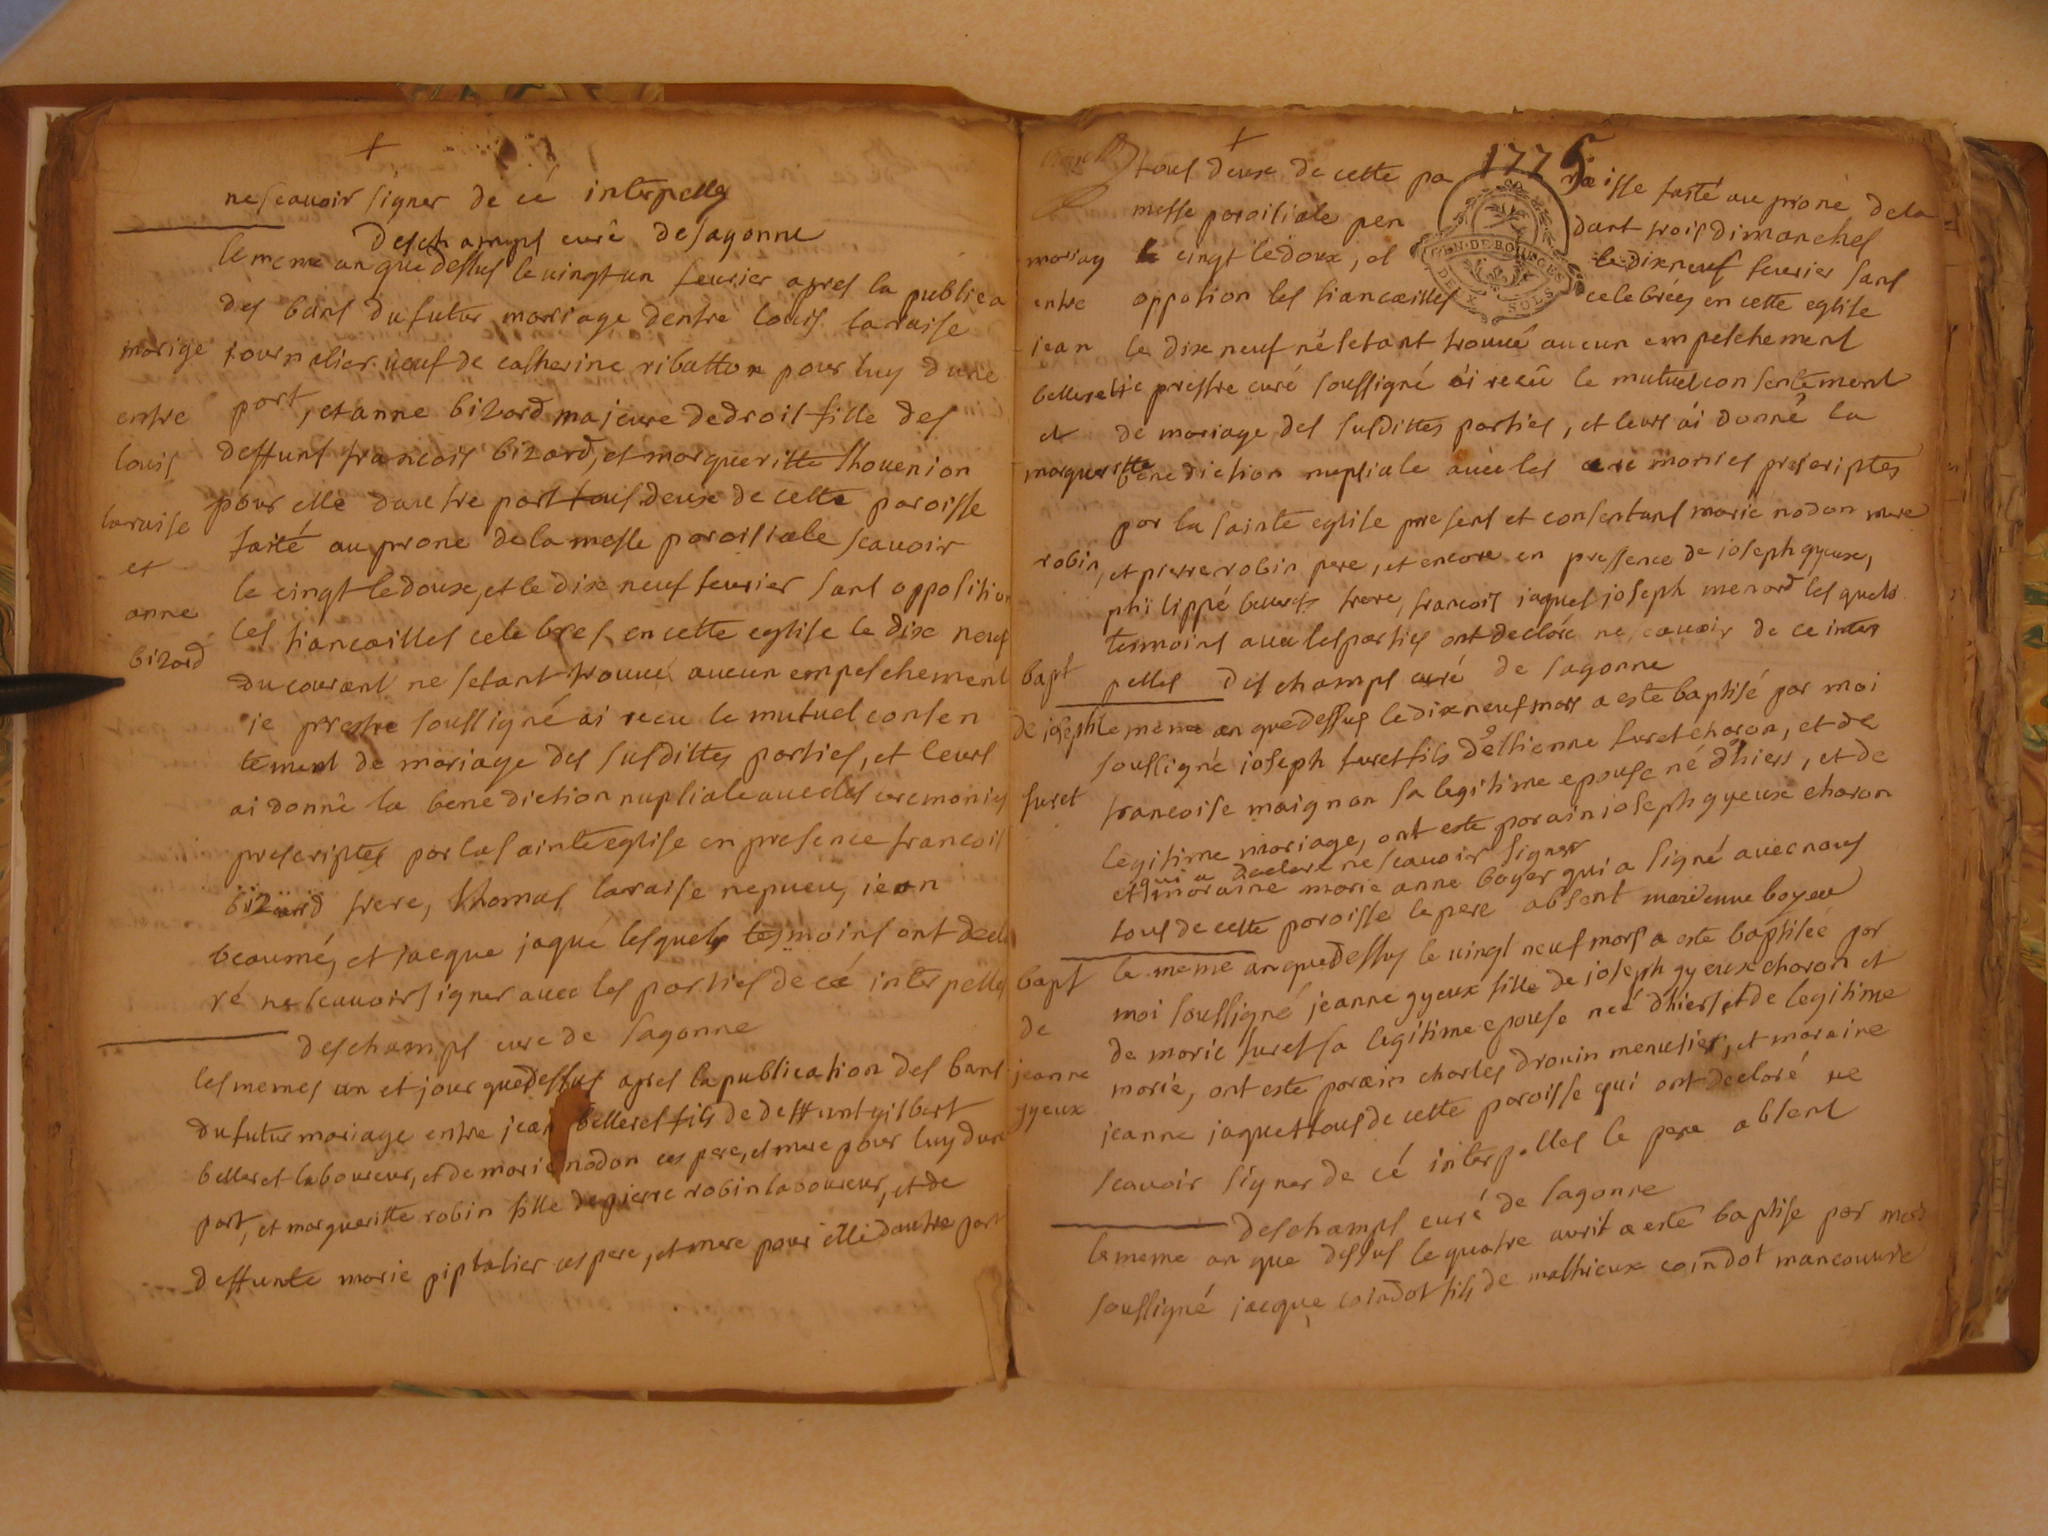 ne scavoir signer de cé interpelles
deschamps curé de sagonne
le meme an que dessus le vingt un feurier apres la publica
des bans du futur marriage dentre louis laraise
marige
journalier ueuf de catherine ribatton pour luy dune
entre
part, et anne bizard majeure de droit fille des
louis
deffunts francois bizard, et margueritte thouenion
laraise
pour elle dautre part tous deux de cette paroisse
et
faité au prone de la messe paroisiale scavoir
anne
le cingt le douxe, et le dix neuf feurier sans oppositio
bizard
les fiancailles celebres en cette eglise le dix neuf
du courant ne setant trouué aucun empeschement
je prestre soussigné ai recu le mutuel consen
tement de mariage des susdittes parties, et leurs
ai donné la benediction nuptiale auec les ceremonies
prescriptes par la sainte eglise en presence francois
bizard frere, thomas laraise nepueu, jean
beaumé, et jacque jaqué lesquels tesmoins ont decla
ré ne scauoir signer auec les parties de cé interpelles
deschamps curé de sagonne
les memes an et jour que dessus apres la publication des bans
du futur mariage entre jean belleret fils de deffunt gilbert
belleret laboureur, et de marie nadon ces pere, et mere pour luy dune
part, et margueritte robin fille de pierre robin laboureur, et de
deffunte marie piptalier ces pere, et mere pour elle dautre part
1775
tous deux de cette pa roisse faité au prone de la
messe paroisiale pen dant trois dimanches
mariag
le cingt le doux, et le dix neuf feurier sans
entre
oppotion les fiancailles celebrées en cette eglise
GEN. DE BOURGES
DEUX SOLS
jean
le dix neuf ne setant trouué aucun empeschement
belleret
je prestre curé soussigné ai recû le mutuel consentement
et
de mariage des susdittes parties, et leurs ai donné la
margueritte
benediction nuptiale auec les ceremonies prescriptes
par la sainte eglise presens et consentans marie nadon mere
robin
, et pierre robin pere, et encore en pressence de joseph gyeux,
philippé frere, francois jaques joseph menard les quels
tesmoins auec les parties ont declaré ne scauoir de ce inter
bapt
pelles deschamps curé de sagonne
de joseph
le meme an que dessus le dix neuf mars a este baptisé par moi
soussigné joseph furet fils détienne furet charon, et de
furet
francoise maignan sa legitime epouse né d'hiers, et de
legitime mariage, ont este parain joseph gyeux charon
qui a declaré ne scauoir signer
et maraine marie anne boyer qui a signé auec nous
tous de cette paroisse le pere absent marienne boyer
bapt
le meme an que dessus le vingt neuf mars a este baptisée par
moi soussigné jeanne gyeux fille de joseph gyeux charon et
de
de marie furet sa legitime epouse neé d'hiers et de legitime
jeanne
marié, ont este parain charles drouin menusier, et maraine
gyeux
jeanne jaquet tous de cette paroisse qui ont declaré ne
scauoir signer de cé interpelles le pere absent
deschamps curé de sagonne
le meme an que dessus le quatre auril a esté baptise par moi
soussigné jacque coindot fils de mathieux coindot manouure